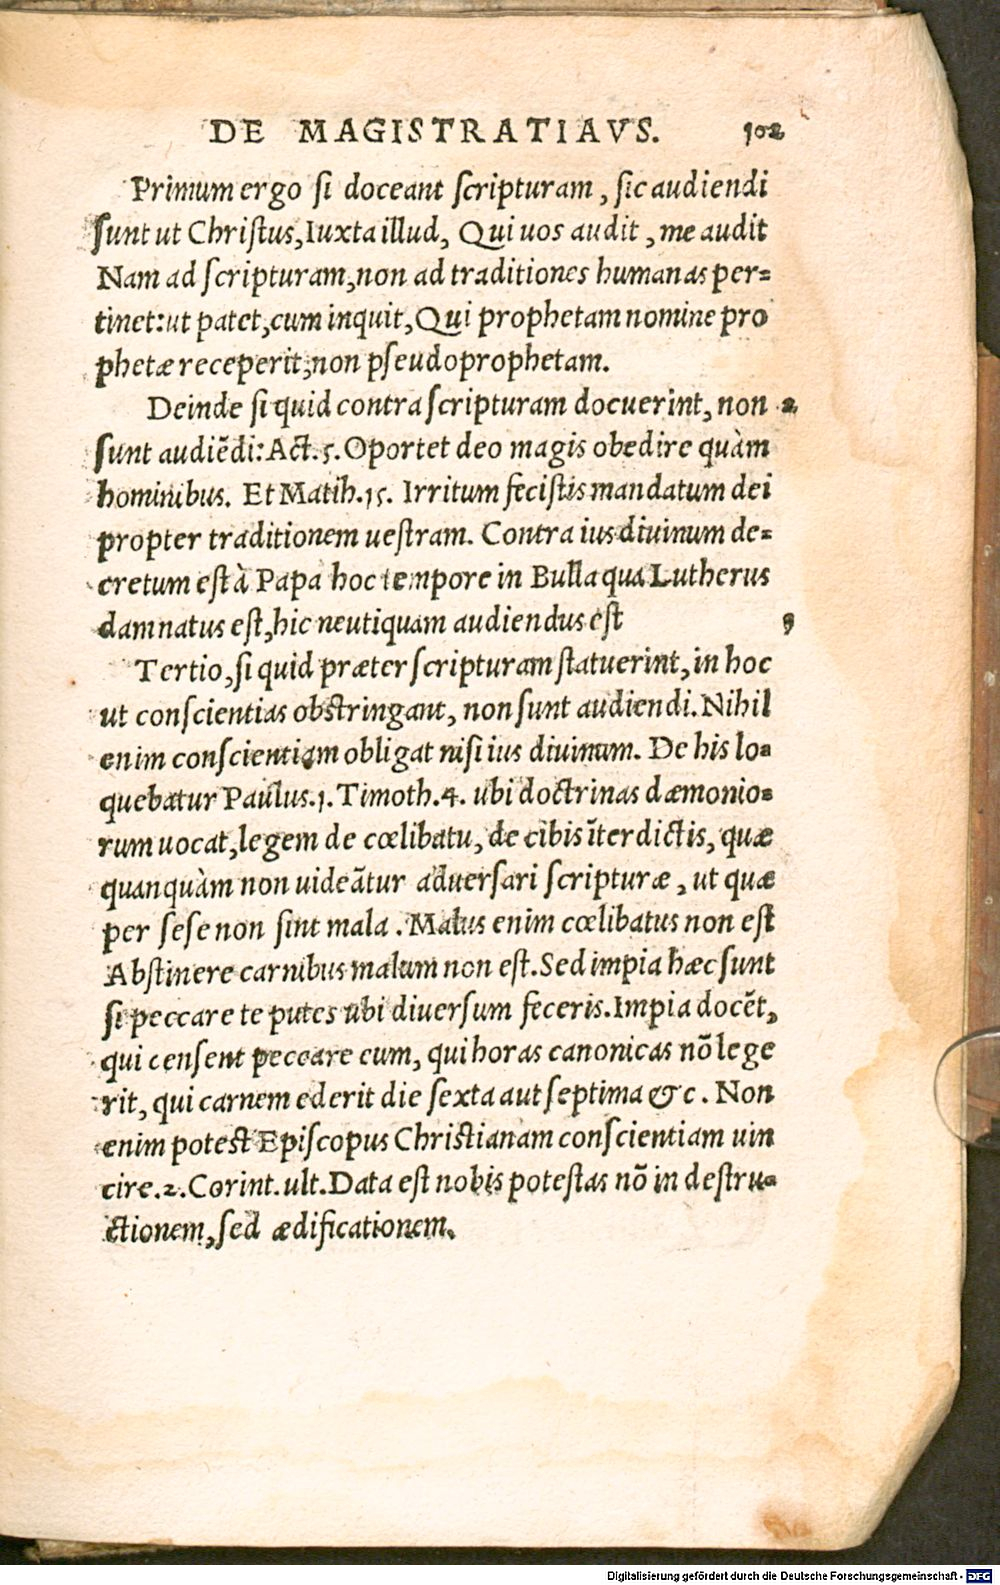 DE MAGISTRATIAVS. 102
Primum ergo si doceant scripturam, sic audiendi
sunt ut Christus, Iuxta illud, Qui uos audit, me audit
Nam ad scripturam, non ad traditiones humanas per=
tinet: ut patet, cum inquit, Qui prophetam nomine pro
phetæ receperit, non pseudoprophetam.
Deinde si quid contra scripturam docuerint, non 2
sunt audiẽdi: Act. 5. Oportet deo magis obedire quàm
hominibus. Et Matth. 15. Irritum fecistis mandatum dei
propter traditionem uestram. Contra ius diuinum de=
cretum est à Papa hoc tempore in Bulla qua Lutherus
damnatus est, hic neutiquam audiendus est 9
Tertio, si quid præter scripturam statuerint, in hoc
ut conscientias obstringant, non sunt audiendi. Nihil
enim conscientiam obligat nisi ius diuinum. De his lo=
quebatur Paulus. 1. Timoth. 4. ubi doctrinas dæmonio=
rum uocat, legem de cœlibatu, de cibis ĩterdictis, quæ
quanquàm non uideãtur aduersari scripturæ, ut quæ
per sese non sint mala. Malus enim cœlibatus non est
Abstinere carnibus malum non est. Sed impia hæc sunt
si peccare te putes ubi diuersum feceris. Impia docẽt,
qui censent peccare eum, qui horas canonicas nõ lege
rit, qui carnem ederit die sexta aut septima &c. Non
enim potest Episcopus Christianam conscientiam uin
cire. 2. Corint. ult. Data est nobis potestas nõ in destru=
ctionem, sed ædificationem.
Digitalisierung gefördert durch die Deutsche Forschungsgemeinschaft - DFG